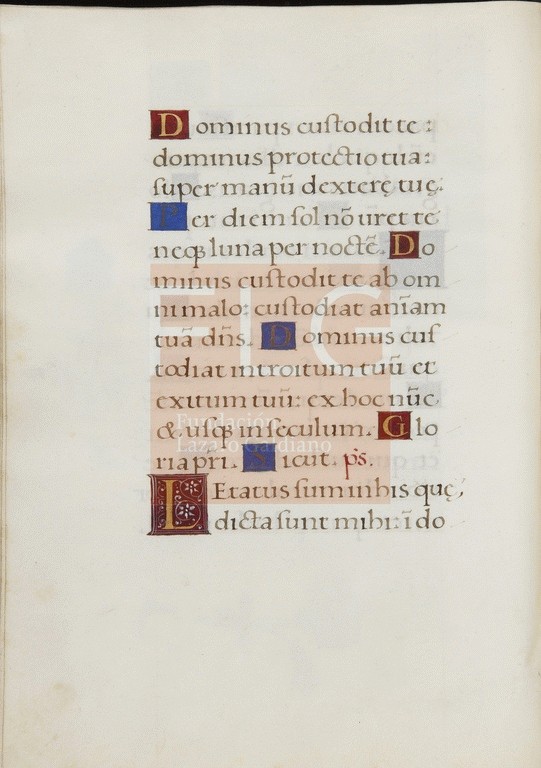 Dominus custodit te:
dominus protectio tua:
super manū dexterę tuę.
Per diem sol nō uret te
neqꝫ luna per noctē. Do
minus custodit te ab om
ni malo: custodiat anīam
tuā dñs. Dominus cus
todiat introitum tuū et
exitum tuū: ex hoc nūc
& usqꝫ in seculum. Glo
ria pr̄i. Sicut. ps̄.
LEtatus sum in his quę
dicta sunt mihi: ī do
FLG
Fundación
Lázaro Galdiano